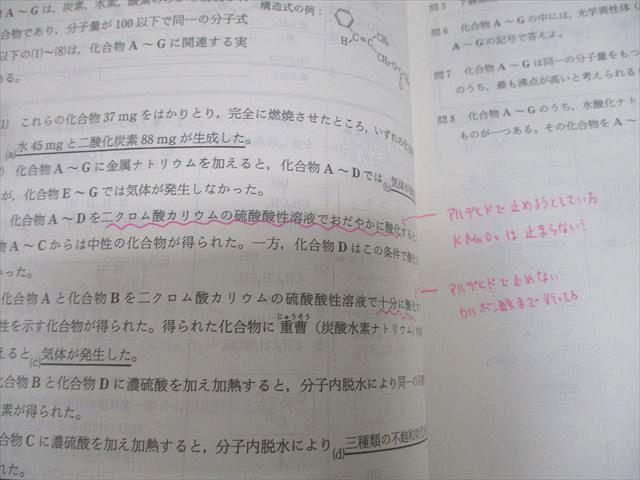 A～Gは，炭素，水素，酸素の
合物であり，分子量が100以下で同一の分子式
以下の(1)～(8)は，化合物A～Gに関連する実
ある。
構造式の例：
H
C=C
CH₃
1) これらの化合物37mgをはかりとり，完全に燃焼させたところ，いずれの化合
(a)水45mgと二酸化炭素88mgが生成した。
) 化合物A～Gに金属ナトリウムを加えると，化合物A～Dでは(b)気体が
が，化合物E～Gでは気体が発生しなかった。
化合物A～Dを二クロム酸カリウムの硫酸酸性溶液でおだやかに酸化すると
物A～Cからは中性の化合物が得られた。一方，化合物Dはこの条件で酸化
かった。
化合物Aと化合物Bを二クロム酸カリウムの硫酸酸性溶液で十分に酸化す
性を示す化合物が得られた。得られた化合物に重曹（炭酸水素ナトリウム）
じゅうそう
えると(c)気体が発生した。
化合物Bと化合物Dに濃硫酸を加え加熱すると，分子内脱水により同一の
素が得られた。
合物Cに濃硫酸を加え加熱すると，分子内脱水により(d)三種類の不飽和炭化
れた。
問6 化合物A～Gの中には，光学異性体
A～Gの記号で答えよ。
問7 化合物A～Gは同一の分子量をもつ
のうち，最も沸点が高いと考えられる
問8 化合物A～Gのうち，水酸化ナト
ものが一つある。その化合物をA～
アルデヒドで止めようとしている
KMnO₄は止まらない!
アルデヒドで止めない
カルボン酸まで行ってる